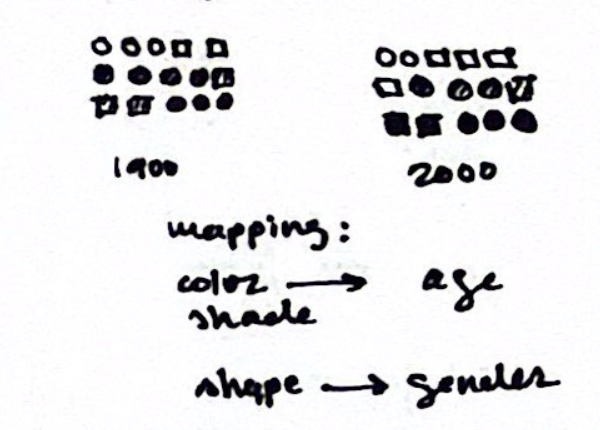 1900
2000
mapping:
color → age
shade
shape → gender